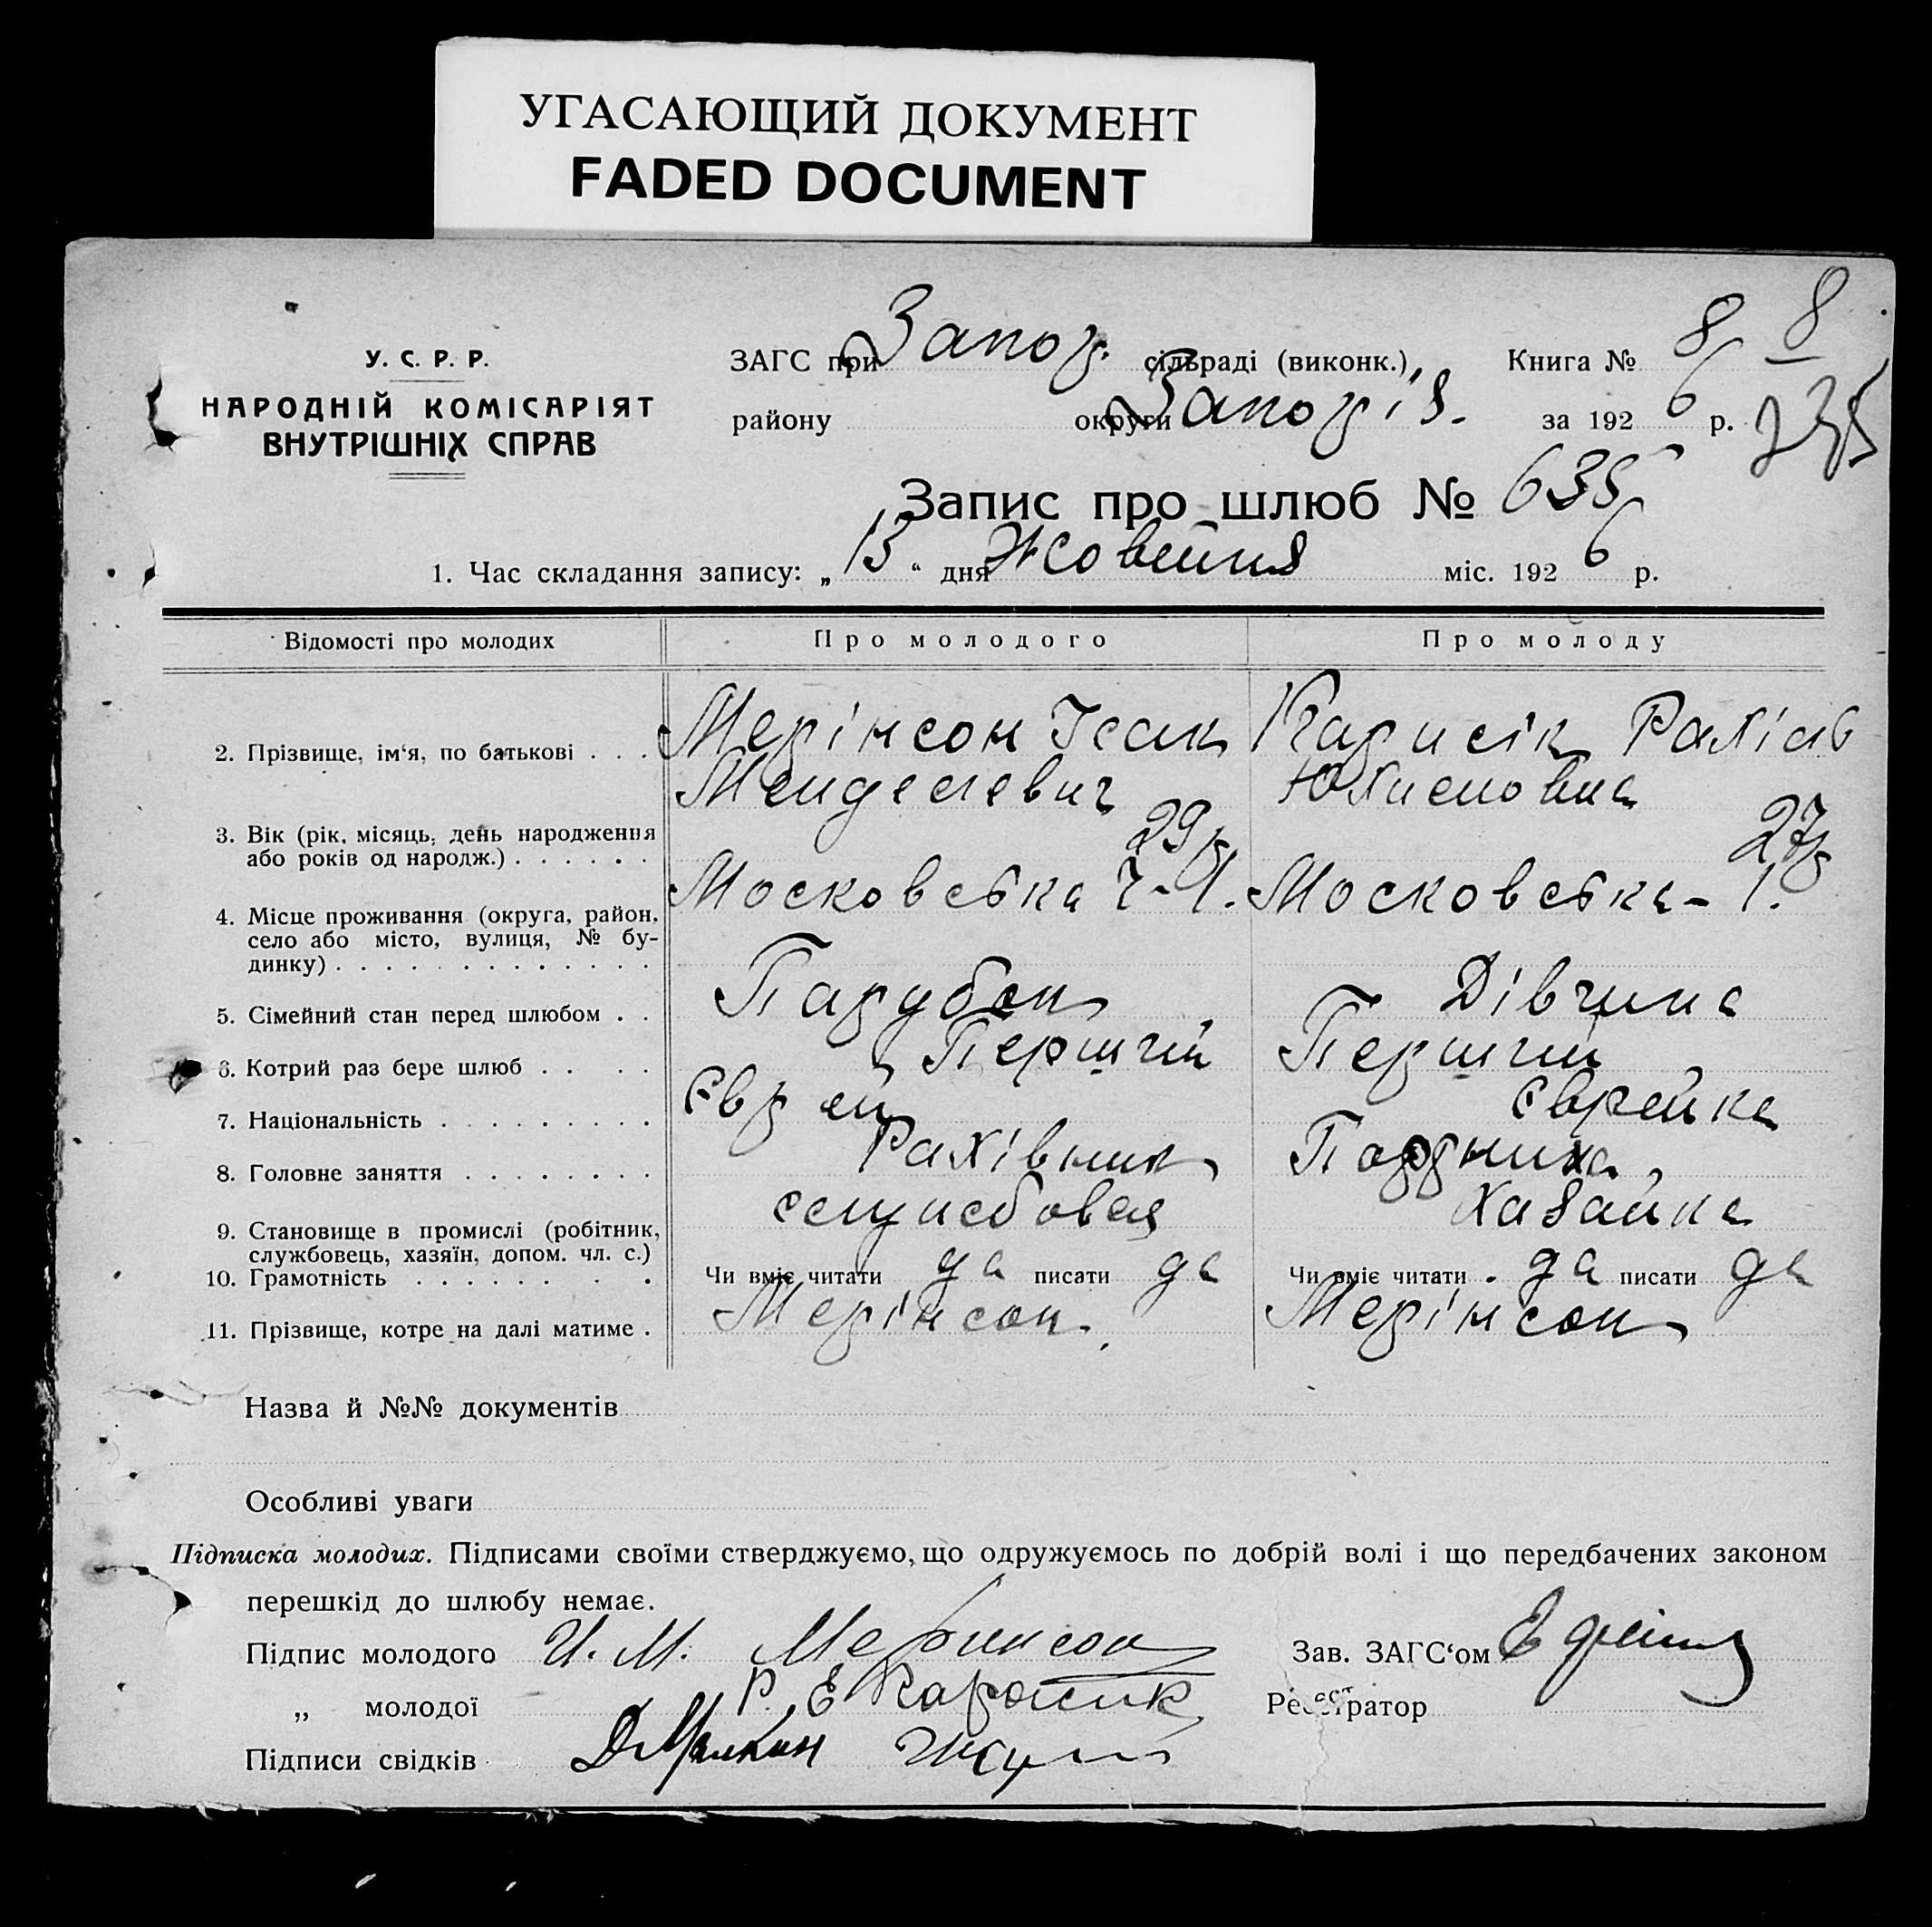 УГАСАЮЩИЙ ДОКУМЕНТ
FADED DOCUMENT
8 8
У. С. Р. Р.
НАРОДНІЙ КОМІСАРІЯТ
ВНУТРІШНІХ СПРАВ
ЗАГС при Запор. сільраді (виконк.), Книга №
району округи Запоріз. за 192 6 р.
Запис про шлюб № 635
1. Час складання запису: „ 13 “ дня Жовтня міс. 192 6 р.
Відомості про молодих Про молодого Про молоду
2. Прізвище, ім‘я, по батькові . . . Мерінсон Ісак
Менделевич
3. Вік (рік, місяць, день народження
або років од народж.) . . . . . . 29 27
4. Місце проживання (округа, район,
село або місто, вулиця, № бу-
динку) . . . . . . . . . . . . . Московська Московська - 1.
5. Сімейний стан перед шлюбом . . Парубок Дівчина
6. Котрий раз бере шлюб . . . . Перший Перший
7. Національність . . . . . . . . . Єврей Єврейка
8. Головне заняття . . . . . . . . Рахівник
9. Становище в промислі (робітник,
службовець, хазяїн, допом. чл. с.) Хазайка
10. Грамотність . . . . . . . . Чи вміє читати да писати да Чи вміє читати . да писати да
11. Прізвище, котре на далі матиме . Мерінсон. Мерінсон
Назва й №№ документів
Особливі уваги
Підписка молодих. Підписами своїми стверджуємо, що одружуємось по добрій волі і що передбачених законом
перешкід до шлюбу немає.
Підпис молодого И. М. Меринсон Зав. ЗАГС‘ом
„ молодої Р. Е Каросик Реєстратор
Підписи свідків